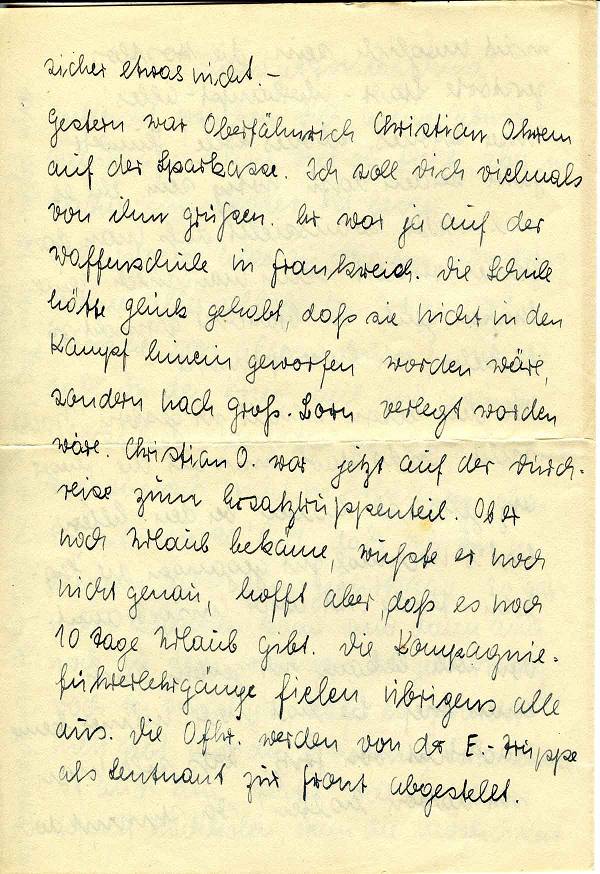 sicher etwas nicht. –
Gestern war Oberfähnrich Christian Ohrem
auf der Sparkasse. Ich soll Dich vielmals
von ihm grüßen. Er war ja auf der
Waffenschule in Frankreich. Die Schule
hätte Glück gehabt, daß sie nicht in den
Kampf hinein geworfen worden wäre,
sondern nach Groß. Born verlegt worden
wäre. Christian O. war jetzt auf der Durch-
reise zum Ersatztruppenteil. Ob er
noch Urlaub bekäme, wußte er noch
nicht genau, hofft aber, daß es noch
10 Tage Urlaub gibt. Die Kompagnie-
führerlehrgänge fielen übrigens alle
aus. Die Ofhr. werden von der E.-Truppe
als Leutnant zur Front abgestellt.